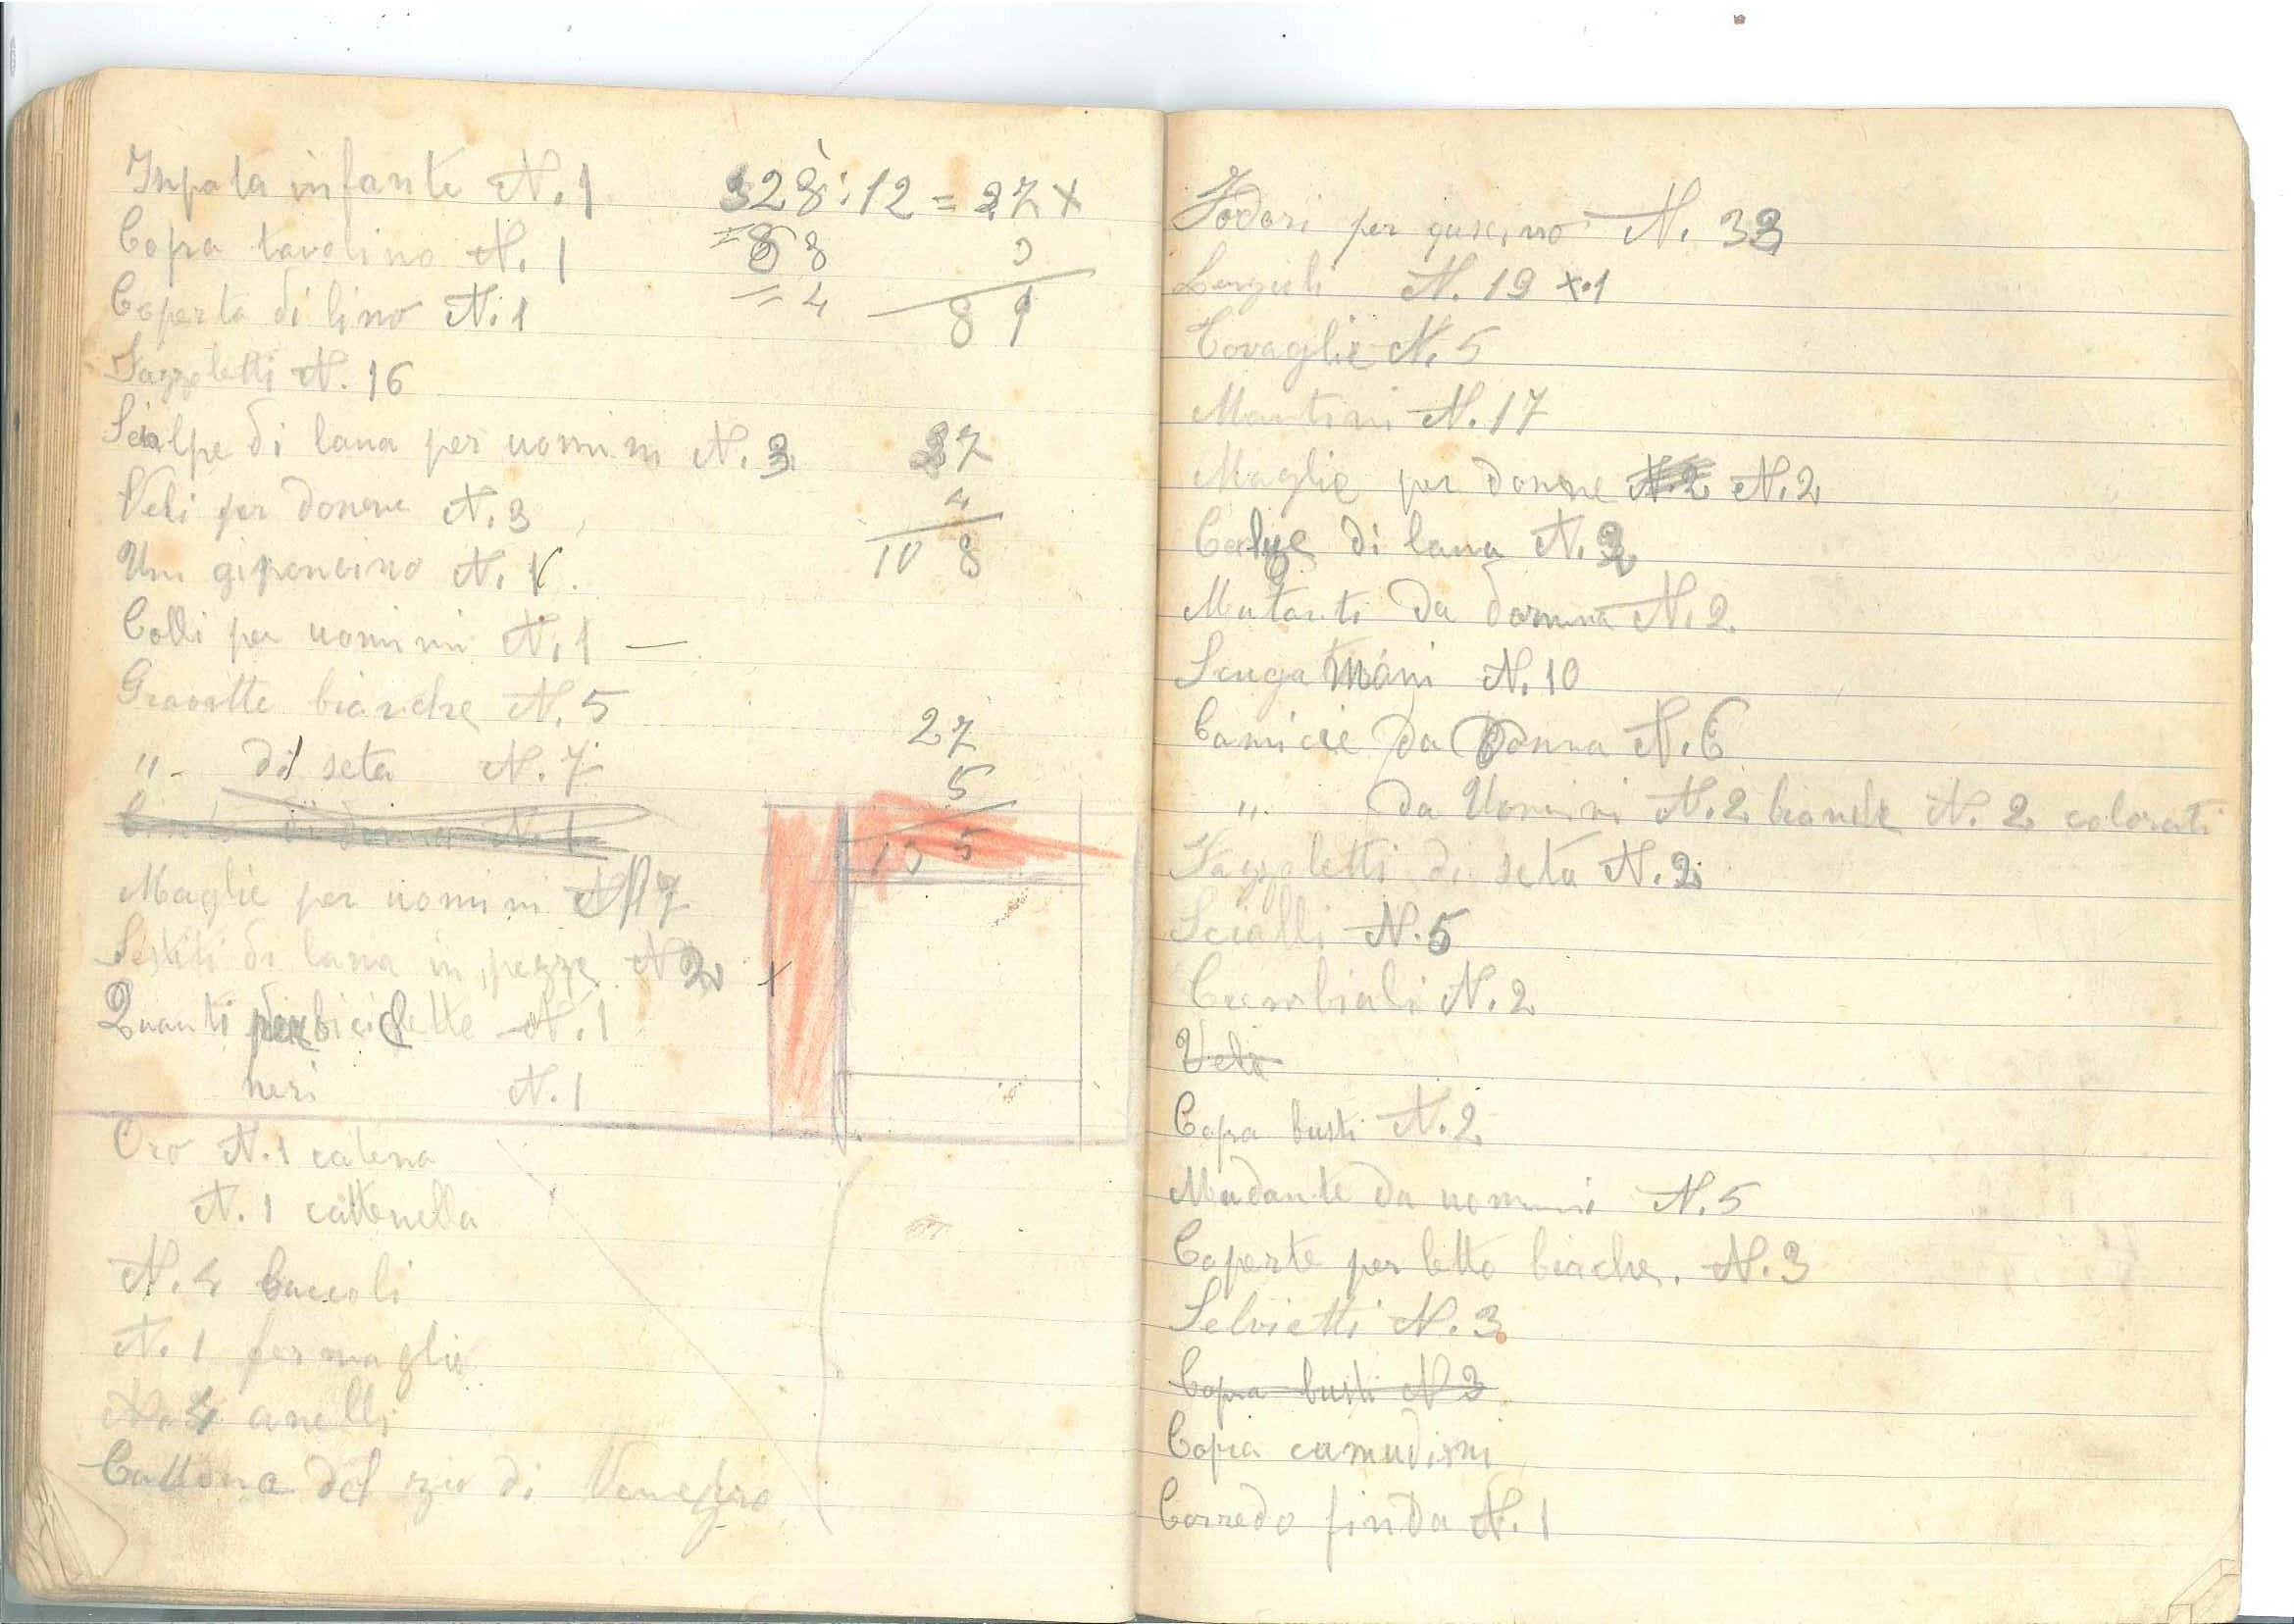 Inpata infante N. 1
Copra tavolino N. 1
Coperta di lino N. 1
Fazzoletti N. 16
Scialpe di lana per uomini N. 3
Veli per donne N. 3
Un giponcino N. 1
Colli per uomini N. 1 —
Gravatte bianche N. 5
" di seta N. 7
Maglie per uomini N. 7
Vestiti di lana in pezze N 2 x
Quanti per biciclette N. 1
neri N. 1
Oro N. 1 catena
N. 1 cattenella
N. 4 buccoli
N. 1 fermaglie
N. 4 anelli
Cattena del zio di
328:12 = 27 x
= 88 3
= 4 81
27
4
10 8
27
5
13 5
Fodori per guscino N. 33
Lenzioli N. 19 x.1
Tovaglie N. 5
Mantini N. 17
Maglie per donne N.2 N.2
Calze di lana N. 3
Mutanti da donna N. 2
Sciugatmani N. 10
Camicie da Donna N. 6
" da Uomini N. 2 bianche N. 2 colorati
Fazzoletti di seta N. 2
Scialli N. 5
Crembiali N. 2
Veli
Copra busti N. 2
Mudante da uomini N. 5
Coperte per letto biache. N. 3
Selvietti N. 3
Copra busti N 3
Copra camudini
Corredo finda N. 1